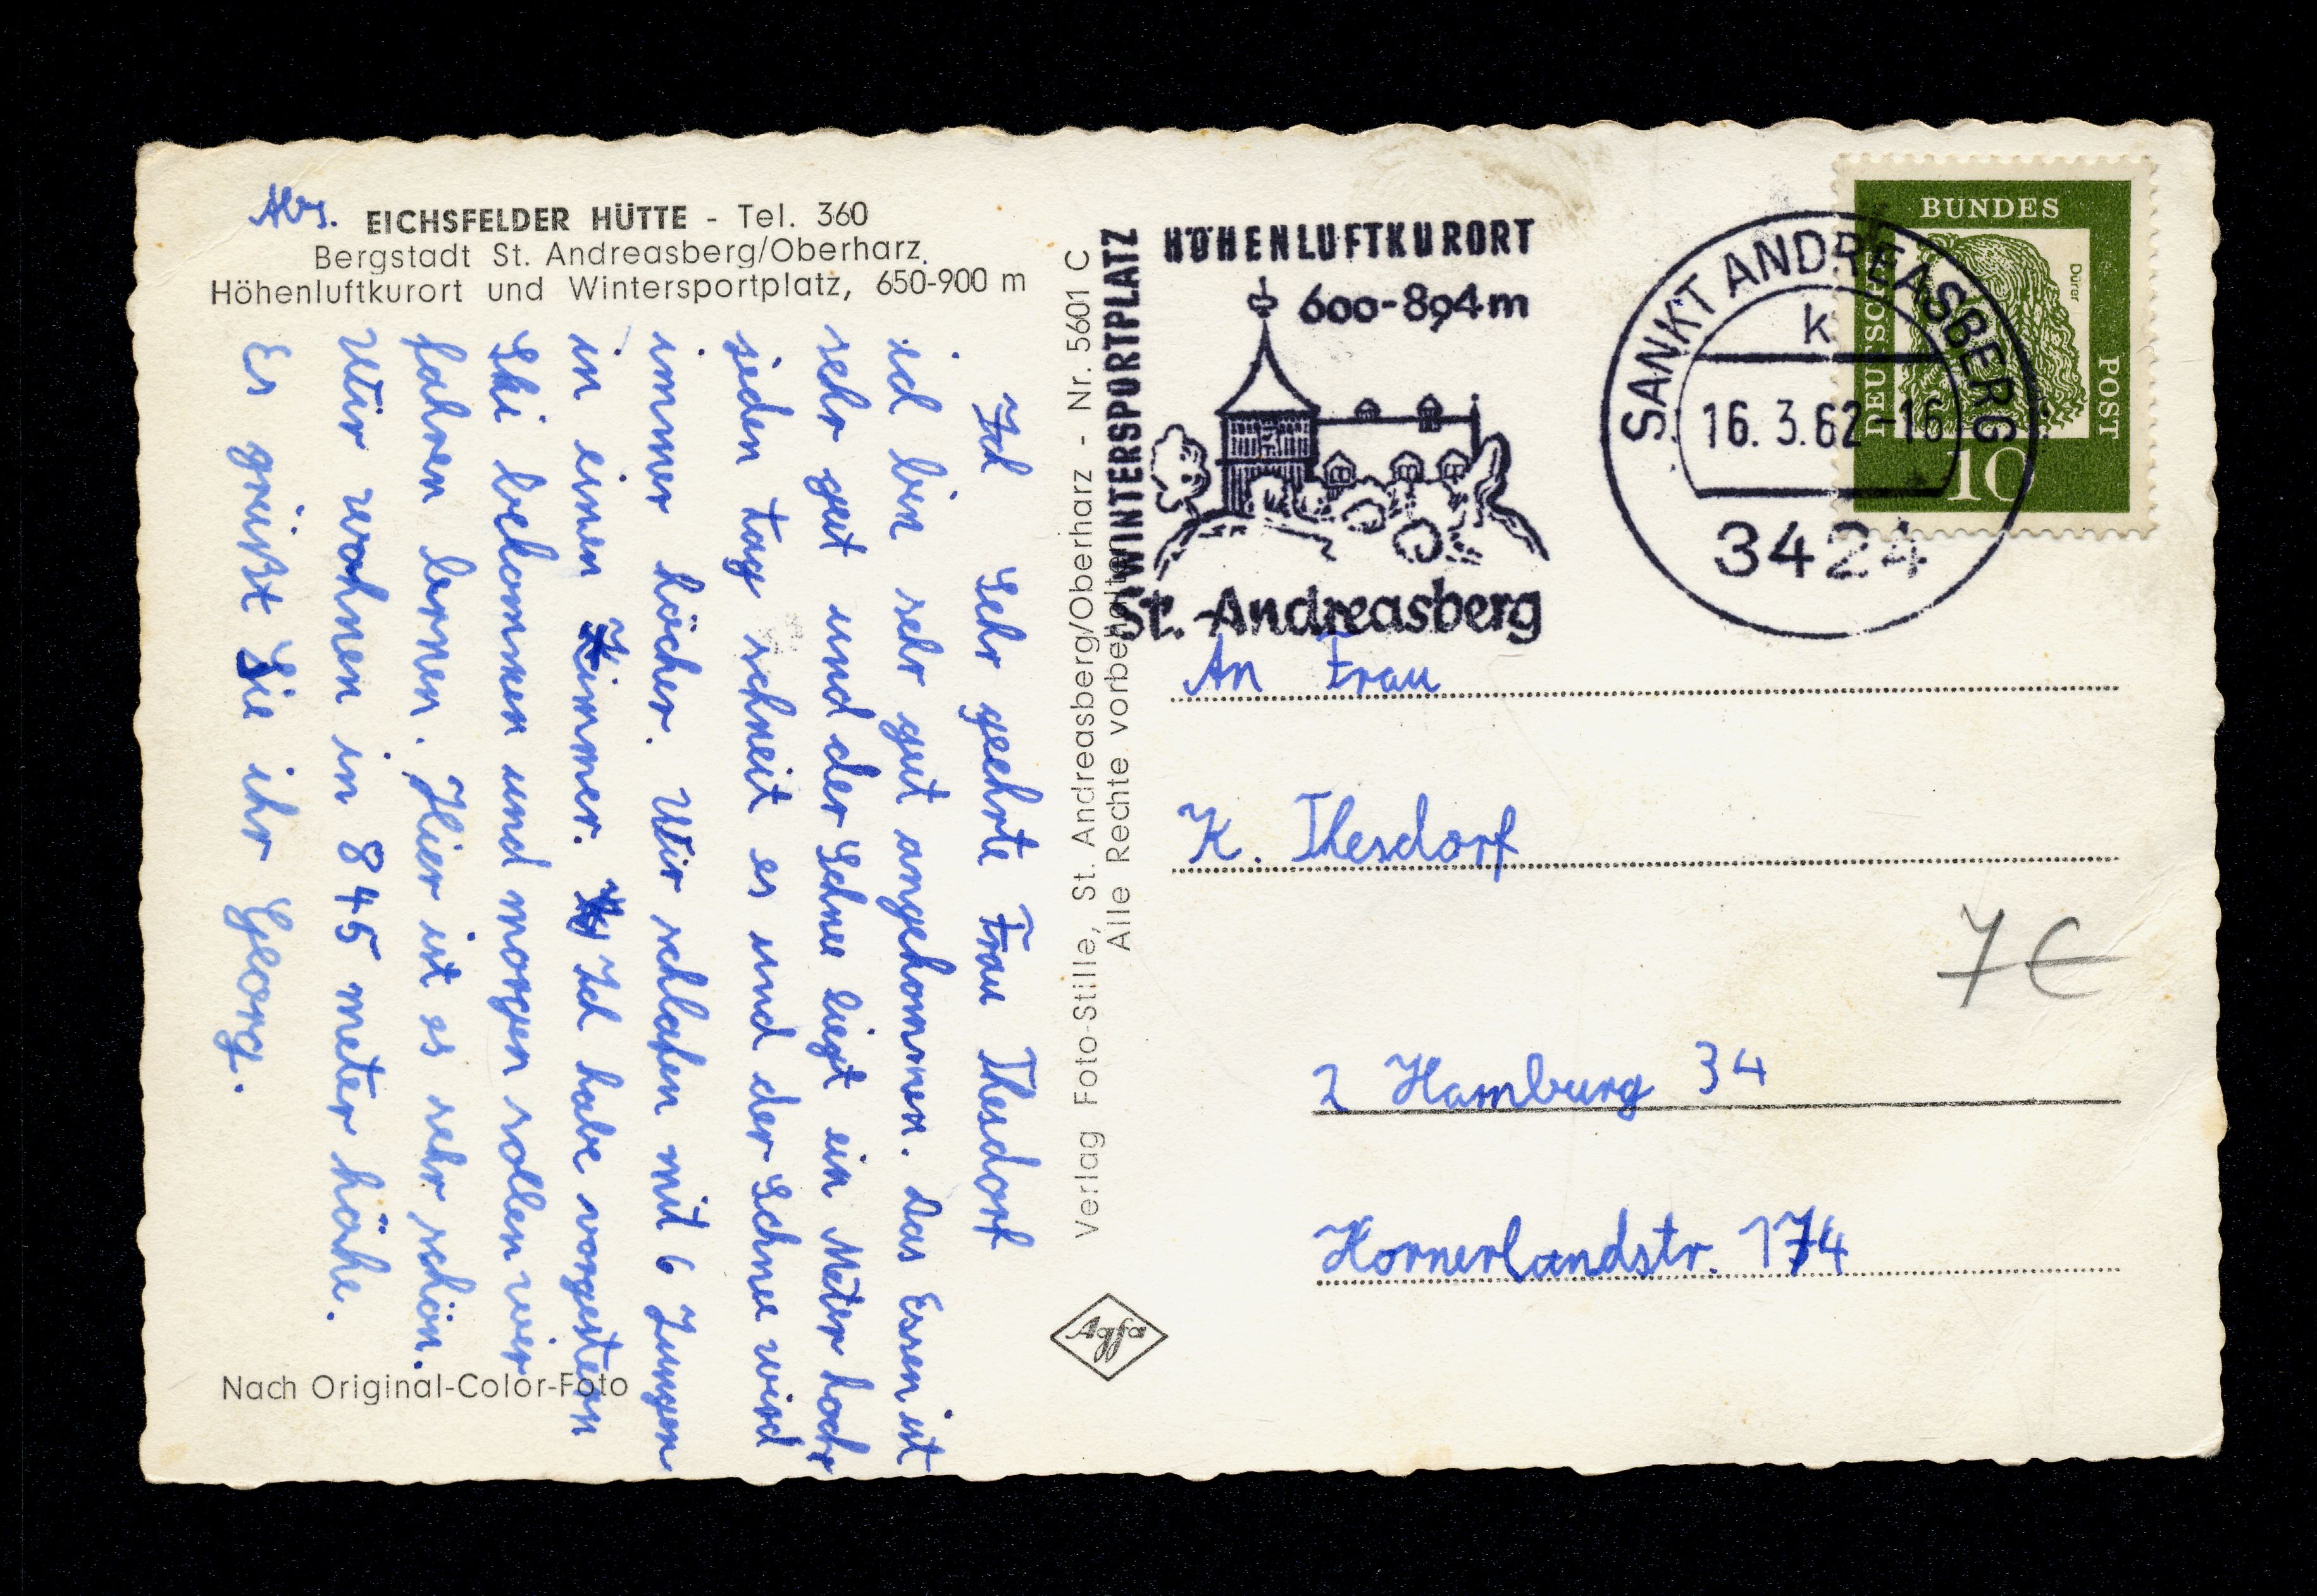 Abs. EICHSFELDER HÜTTE - Tel. 360
Bergstadt St. Andreasberg/Oberharz.
Höhenluftkurort und Wintersportplatz, 650-900 m
Ich Sehr geehrte Frau Thesdorf
ich bin sehr gut angekommen. Das Essen ist
sehr gut und der Schnee liegt ein Meter hoch
jeden tag schneit es und der Schnee wird
immer höcher. Wir schlafen mit 6 Jungen
in einen Zimmer. Ich habe vorgestern
Ski bekommen und morgen sollen wir
fahren lernen. Hier ist es sehr schön.
Wir wohnen in 845 meter höhe.
Es grüßt Sie ihr Georg.
Nach Original-Color-Foto
Verlag Foto-Stille, St. Andreasberg/Oberharz - Nr. 5601 C
Alle Rechte vorbehalten
Agfa
WINTERSPORTPLATZ
HÖHENLUFTKURORT
600-894m
St. Andreasberg
SANKT ANDREASBERG
k
16. 3. 62-16
3424
DEUTSCHE
BUNDES
POST
Dürer
10
An Frau
K. Thesdorf
7€
2 Hamburg 34
Hornerlandstr. 174